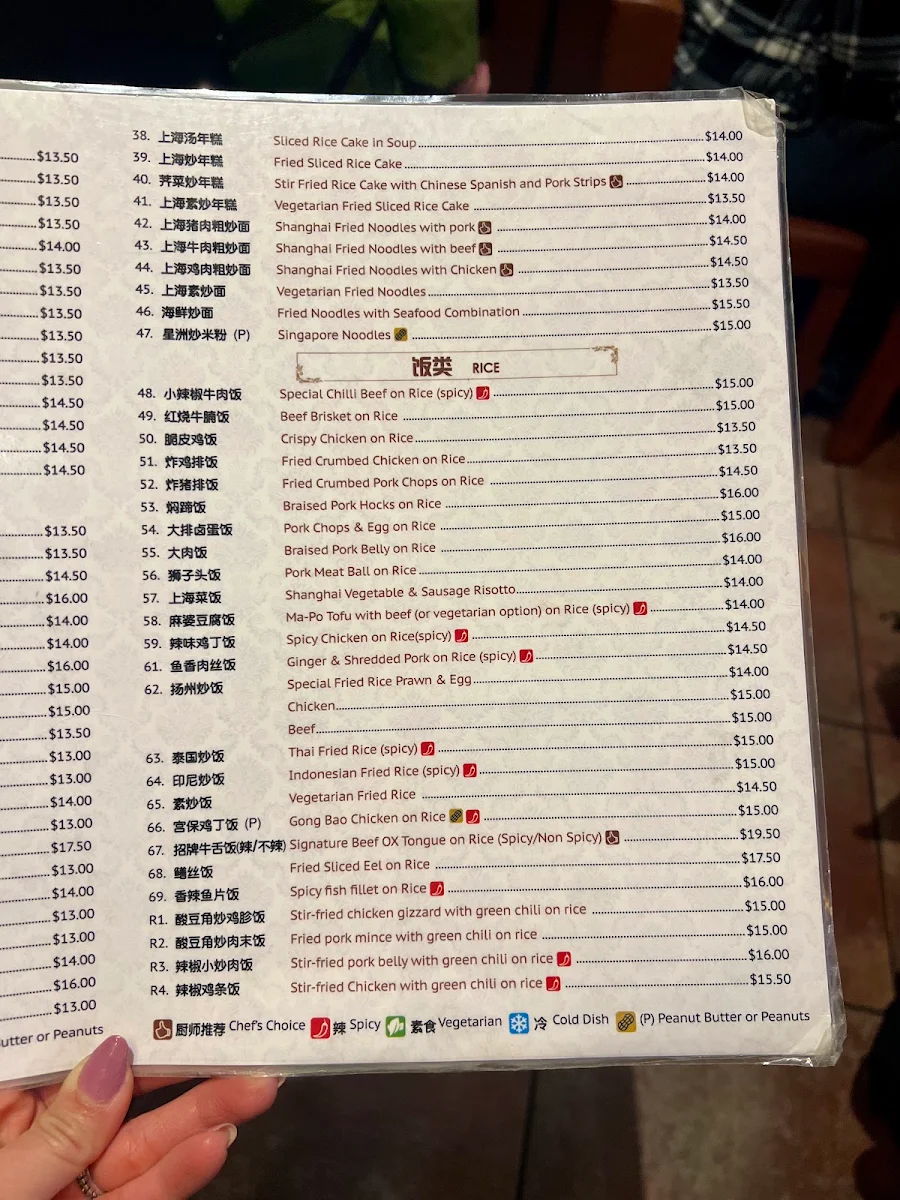 $13.50
$13.50
$13.50
$13.50
$14.00
$13.50
$13.50
$13.50
$13.50
$13.50
$13.50
$14.50
$14.50
$14.50
$14.50
$13.50
$13.50
$14.50
$16.00
$14.00
$14.00
$16.00
$15.00
$15.00
$13.50
$13.00
$13.00
$14.00
$13.00
$17.50
$13.00
$14.00
$13.00
$13.00
$14.00
$16.00
$13.00
utter or Peanuts
38. 上海汤年糕 Sliced Rice Cake in Soup $14.00
39. 上海炒年糕 Fried Sliced Rice Cake $14.00
40. 荠菜炒年糕 Stir Fried Rice Cake with Chinese Spanish and Pork Strips $14.00
41. 上海素炒年糕 Vegetarian Fried Sliced Rice Cake $13.50
42. 上海猪肉粗炒面 Shanghai Fried Noodles with pork $14.00
43. 上海牛肉粗炒面 Shanghai Fried Noodles with beef $14.50
44. 上海鸡肉粗炒面 Shanghai Fried Noodles with Chicken $14.50
45. 上海素炒面 Vegetarian Fried Noodles $13.50
46. 海鲜炒面 Fried Noodles with Seafood Combination $15.50
47. 星洲炒米粉 (P) Singapore Noodles $15.00
饭类 RICE
48. 小辣椒牛肉饭 Special Chilli Beef on Rice (spicy) $15.00
49. 红烧牛腩饭 Beef Brisket on Rice $15.00
50. 脆皮鸡饭 Crispy Chicken on Rice $13.50
51. 炸鸡排饭 Fried Crumbed Chicken on Rice $13.50
52. 炸猪排饭 Fried Crumbed Pork Chops on Rice $14.50
53. 焖蹄饭 Braised Pork Hocks on Rice $16.00
54. 大排卤蛋饭 Pork Chops & Egg on Rice $15.00
55. 大肉饭 Braised Pork Belly on Rice $16.00
56. 狮子头饭 Pork Meat Ball on Rice $14.00
57. 上海菜饭 Shanghai Vegetable & Sausage Risotto $14.00
58. 麻婆豆腐饭 Ma-Po Tofu with beef (or vegetarian option) on Rice (spicy) $14.00
59. 辣味鸡丁饭 Spicy Chicken on Rice(spicy) $14.50
61. 鱼香肉丝饭 Ginger & Shredded Pork on Rice (spicy) $14.50
62. 扬州炒饭 Special Fried Rice Prawn & Egg $14.00
Chicken $15.00
Beef $15.00
63. 泰国炒饭 Thai Fried Rice (spicy) $15.00
64. 印尼炒饭 Indonesian Fried Rice (spicy) $15.00
65. 素炒饭 Vegetarian Fried Rice $14.50
66. 宫保鸡丁饭 (P) Gong Bao Chicken on Rice $15.00
67. 招牌牛舌饭(辣/不辣) Signature Beef OX Tongue on Rice (Spicy/Non Spicy) $19.50
68. 鳝丝饭 Fried Sliced Eel on Rice $17.50
69. 香辣鱼片饭 Spicy fish fillet on Rice $16.00
R1. 酸豆角炒鸡胗饭 Stir-fried chicken gizzard with green chili on rice $15.00
R2. 酸豆角炒肉末饭 Fried pork mince with green chili on rice $15.00
R3. 辣椒小炒肉饭 Stir-fried pork belly with green chili on rice $16.00
R4. 辣椒鸡条饭 Stir-fried Chicken with green chili on rice $15.50
厨师推荐 Chef's Choice 辣 Spicy 素食 Vegetarian 冷 Cold Dish (P) Peanut Butter or Peanuts